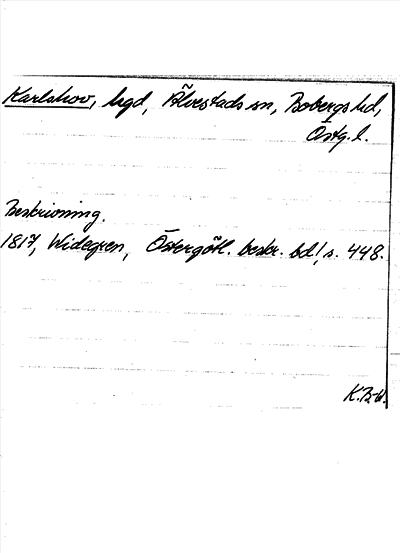 Karlshov, hgd, Älvestads sn, Bobergs hd,
Östg. l.
Beskrivning.
1817, Widegren, Östergötl. beskr. bd 1, s. 448.
K.B-H.